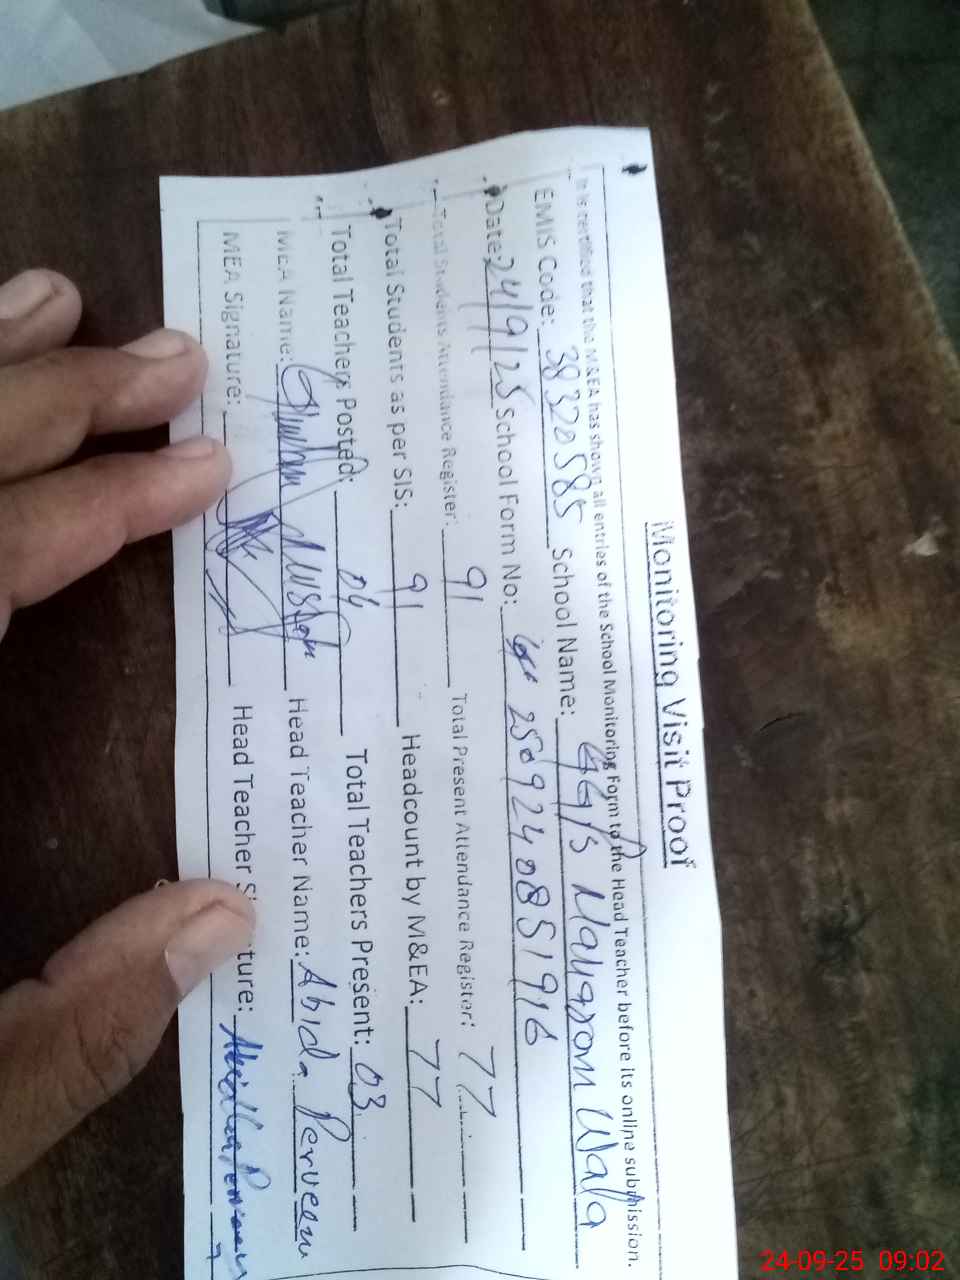 Monitoring Visit Proof
It is certified that the M&EA has shown all entries of the School Monitoring Form to the Head Teacher before its online submission.
EMIS Code: 38320585 School Name: GGPS Nawaron Wala
Date: 24/9/25 School Form No: 2509240851916
Total Students Attendance Register: 91 Total Present Attendance Register: 77
Total Students as per SIS: 91 Headcount by M&EA: 77
Total Teachers Posted: 04 Total Teachers Present: 03
MEA Name: Ghulam Hussain Head Teacher Name: Abida Perveen
MEA Signature: Head Teacher Signature:
24-09-25 09:02